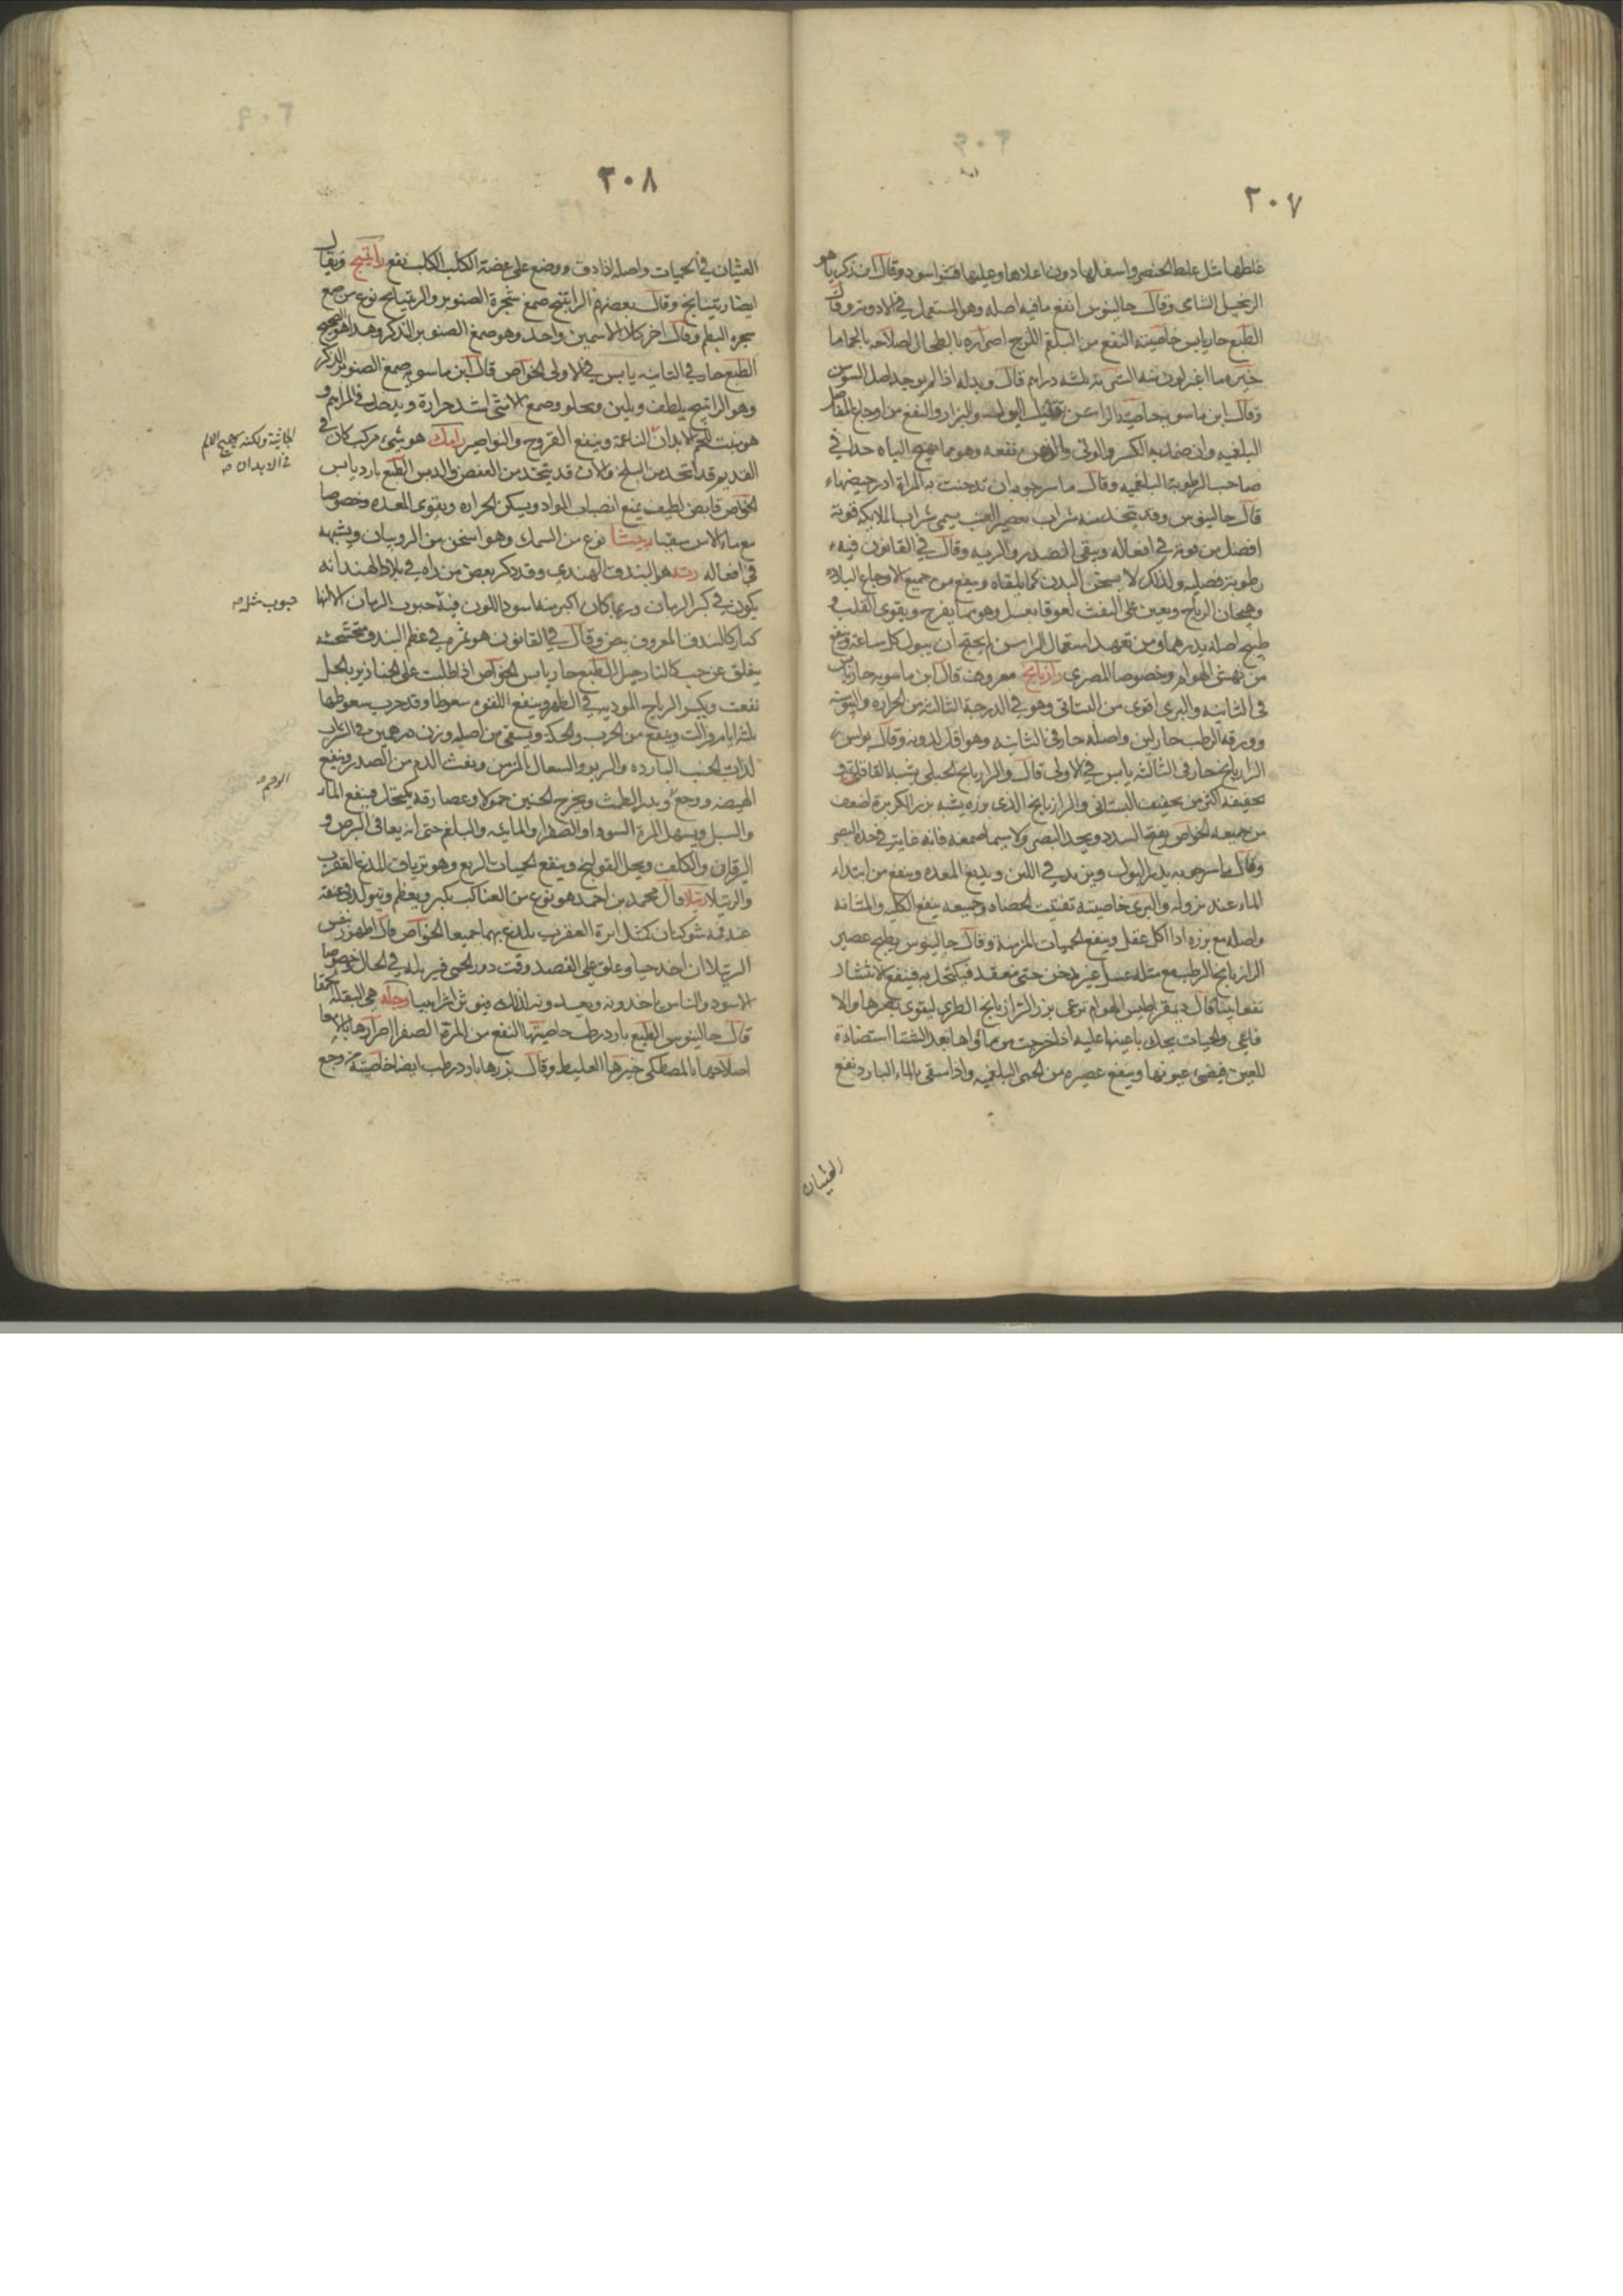 ٢٠٧
غلظها مثل غلظ الخنصر واسفلها دون اعلاها وعليها قشر اسود وقال ابن زكريا هو
الزنجبيل الشامي وقال جالينوس انفع ما فيه اصله وهو المستعمل في الادوية وقال
الطبع حار يابس خاصيته النفع من البلغم اللزج اضراره بالطحال اصلاحه بالحماما
خيره ما اغبر لونه الشربة ثلثه دراهم قال وبدله اذا لم يوجد اصل السوسن
وقال ابن ماسويه خاصية الراسن تقليل البول والبزاز والنفع من اوجاع المفاصل
البلغميه وان ضمد به الكسر والوثي والوهن نفعه وهو مما يهيج الباه جدا في
صاحب الرطوبة البلغميه وقال ماسرجويه ان تدخنت به المراة ادر حيضها
قال جالينوس وقد يتخذ منه شراب بعصير العنب يسمى شراب الملايكه قوته
افضل من قوته في افعاله وينقي الصدر والريه وقال في القانون فيه
رطوبة فضليه ولذلك لا يسخن البدن كما يلقاه وينفع من جميع الاوجاع الباردة
وهيجان الرياح ويعين على النفث لعوقا بعسل وهو مما يفرح ويقوي القلب و
طبيخ اصله يدرهما ومن تعهد استعمال الراسن لم يحتج ان يبول كل ساعة وينفع
من نهش الهوام وخصوصا المصري رازيانج معروف قال ابن ماسويه حار يابس
في الثانية والبري اقوى من البستاني وهو في الدرجة الثالثة من الحرارة واليبوسة
وورقه الرطب حار لين واصله حار في الثانيه وهو اقل لدونه وقال بولس
الرازيانج حار في الثالثة يابس في الاولى قال والرازيانج الجبلي يشبه القاقلي و
تجفيفه اكثر من تجفيف البستاني والرازيانج الذي بزره يشبه بزر الكزبرة اضعف
من جميعه الخواص يفتح السدد ويحد البصر ولا سيما صمغه فانه غاية في حدة البصر
وقال ماسرجويه يدر البول ويزيد في اللبن ويدبغ المعده وينفع من ابتداء
الماء عند نزوله والبري خاصيته تفتيت الحصاه وجميعه ينفع الكليه والمثانه
واصله مع بزره اذا اكل عقل وينفع الحميات المزمنة وقال جالينوس يطبخ عصير
الرازيانج الرطب مع مثله عسل غير مدخن حتى ينعقد فيكتحل به فينفع الانتشار
نفعا بينا قال ديمقراطيس الهوام ترعى بزر الرازيانج الطري ليقوى بصرها والا
فاعي والحيات يحك باعينها عليه اذا خرجت من ماواها بعد الشتا استضاءة
للعين فيضيء عيونها وينفع عصيره من الحمى البلغميه واذا سقي بالماء البارد نفع
الغثيان
٢٠٨
الغثيان في الحميات واصله اذا دق ووضع على عضة الكلب الكلب نفع راتينج ويقال
ايضا ريتيانج وقال بعضهم الراتينج صمغ شجرة الصنوبر والريتيانج نوع من صمغ
شجره البطم وقال اخر كلا الاسمين واحد وهو صمغ الصنوبر الذكر وهذا هو الصحيح
الطبع حار في الثانيه يابس في الاولى الخواص قال ابن ماسويه صمغ الصنوبر الذكر
وهو الراتينج يلطف ويلين ويجلو وصمغ الانثى اشد حرارة ويدخل في المراهم و
هو ينبت اللحم في الابدان الناعمة وينفع القروح والنواصير رامك هو شيء مركب كان في
القديم قد اتخذ من البلح والان قد يتخذ من العفص والدبس الطبع بارد يابس
الخواص قابض لطيف يمنع انصباب المواد ويسكن الحراره ويقوي المعده وخصوصا
مع ماء الاس سقيا ربيثا نوع من السمك وهو اسخن من الروبيان ويشبهه
في افعاله رته هو البندق الهندي وقد ذكر بعض من راه في بلاد الهند انه
يكون في كبر الرمان وربما كان اكبر منه اسود اللون فيه حبوب الرمان الا انها
كبار كالبندق المعروف بيض وقال في القانون هو ثمرة في عظم البندق متخشخشه
ينفلق عن حب كالنارجيل الطبع حار يابس الخواص اذا طليت على الخنازير بالخل
نفعت ويكسر الرياح الموديه في الظهر وينفع اللقوه سعوطا وقد جرب سعوطها
ثلثه ايام فزالت وينفع من الجرب والحكة ويسقى من اصله وزن درهمين في الشراب
لذات الجنب البارده والربو والسعال المزمن ونفث الدم من الصدر وينفع
الهيضه ووجع ويدر الطمث ويخرج الجنين حمولا وعصارته يكتحل فينفع الماء
والسبل ويسهل المرة السوداء والصفراء والمائيه والبلغم حتى انه يعافي البرص و
اليرقان والكلف ويحل القولنج وينفع الحميات الربع وهو ترياق للدغ العقرب
والرتيلا رتيلا قال محمد بن احمد هو نوع من العناكب يكبر ويعظم ويتولد في عنقه
عند فمه شوكتان كمثل ابرة العقرب يلدغ بهما جميعا الخواص قال اطهورسفس
الرتيلا ان اخذ حيا وعلق على الفصد وقت دور الحمى فيبريه في الحال وخصوصا
الاسود والناس ياخذونه ويعدونه لذلك رجله هي البقلة الحمقا
قال جالينوس الطبع بارد رطب خاصيتها النفع من المرة الصفرا اضرارها بالامعا
اصلاحها بالمصطكي خيرها الغليظ وقال بزرها بارد رطب ايضا خاصيته من وجع
الجانية ولكنه يهيج الالم
في الابدان صه
حبوب مثل صه
الرحم صه